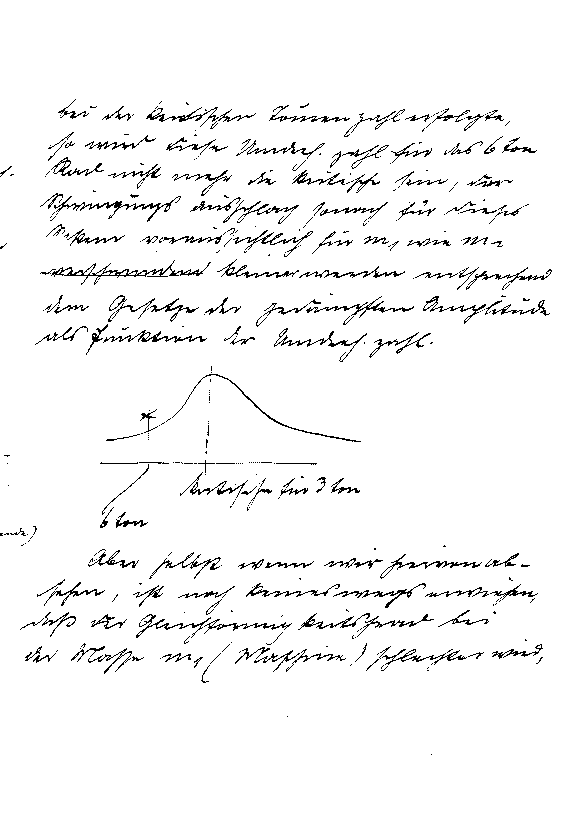 bei der kritischen Tourenzahl erfolgte,
so wird diese Umdreh. zahl für das 6 ton
Rad nicht mehr die kritische sein, der
Schwingungsausschlag sonach für dieses
System voraussichtlich für m₁ wie m₂
verschwindend kleiner werden entsprechend
dem Gesetze der gedämpften Amplitude
als Funktion der Umdreh. zahl.
kritische für 3 ton
6 ton
Aber selbst wenn wir hiervon ab-
sehen, ist noch keineswegs erwiesen,
daß der Gleichförmigkeitsgrad bei
der Masse m₁ (Maschine) schlechter wird,